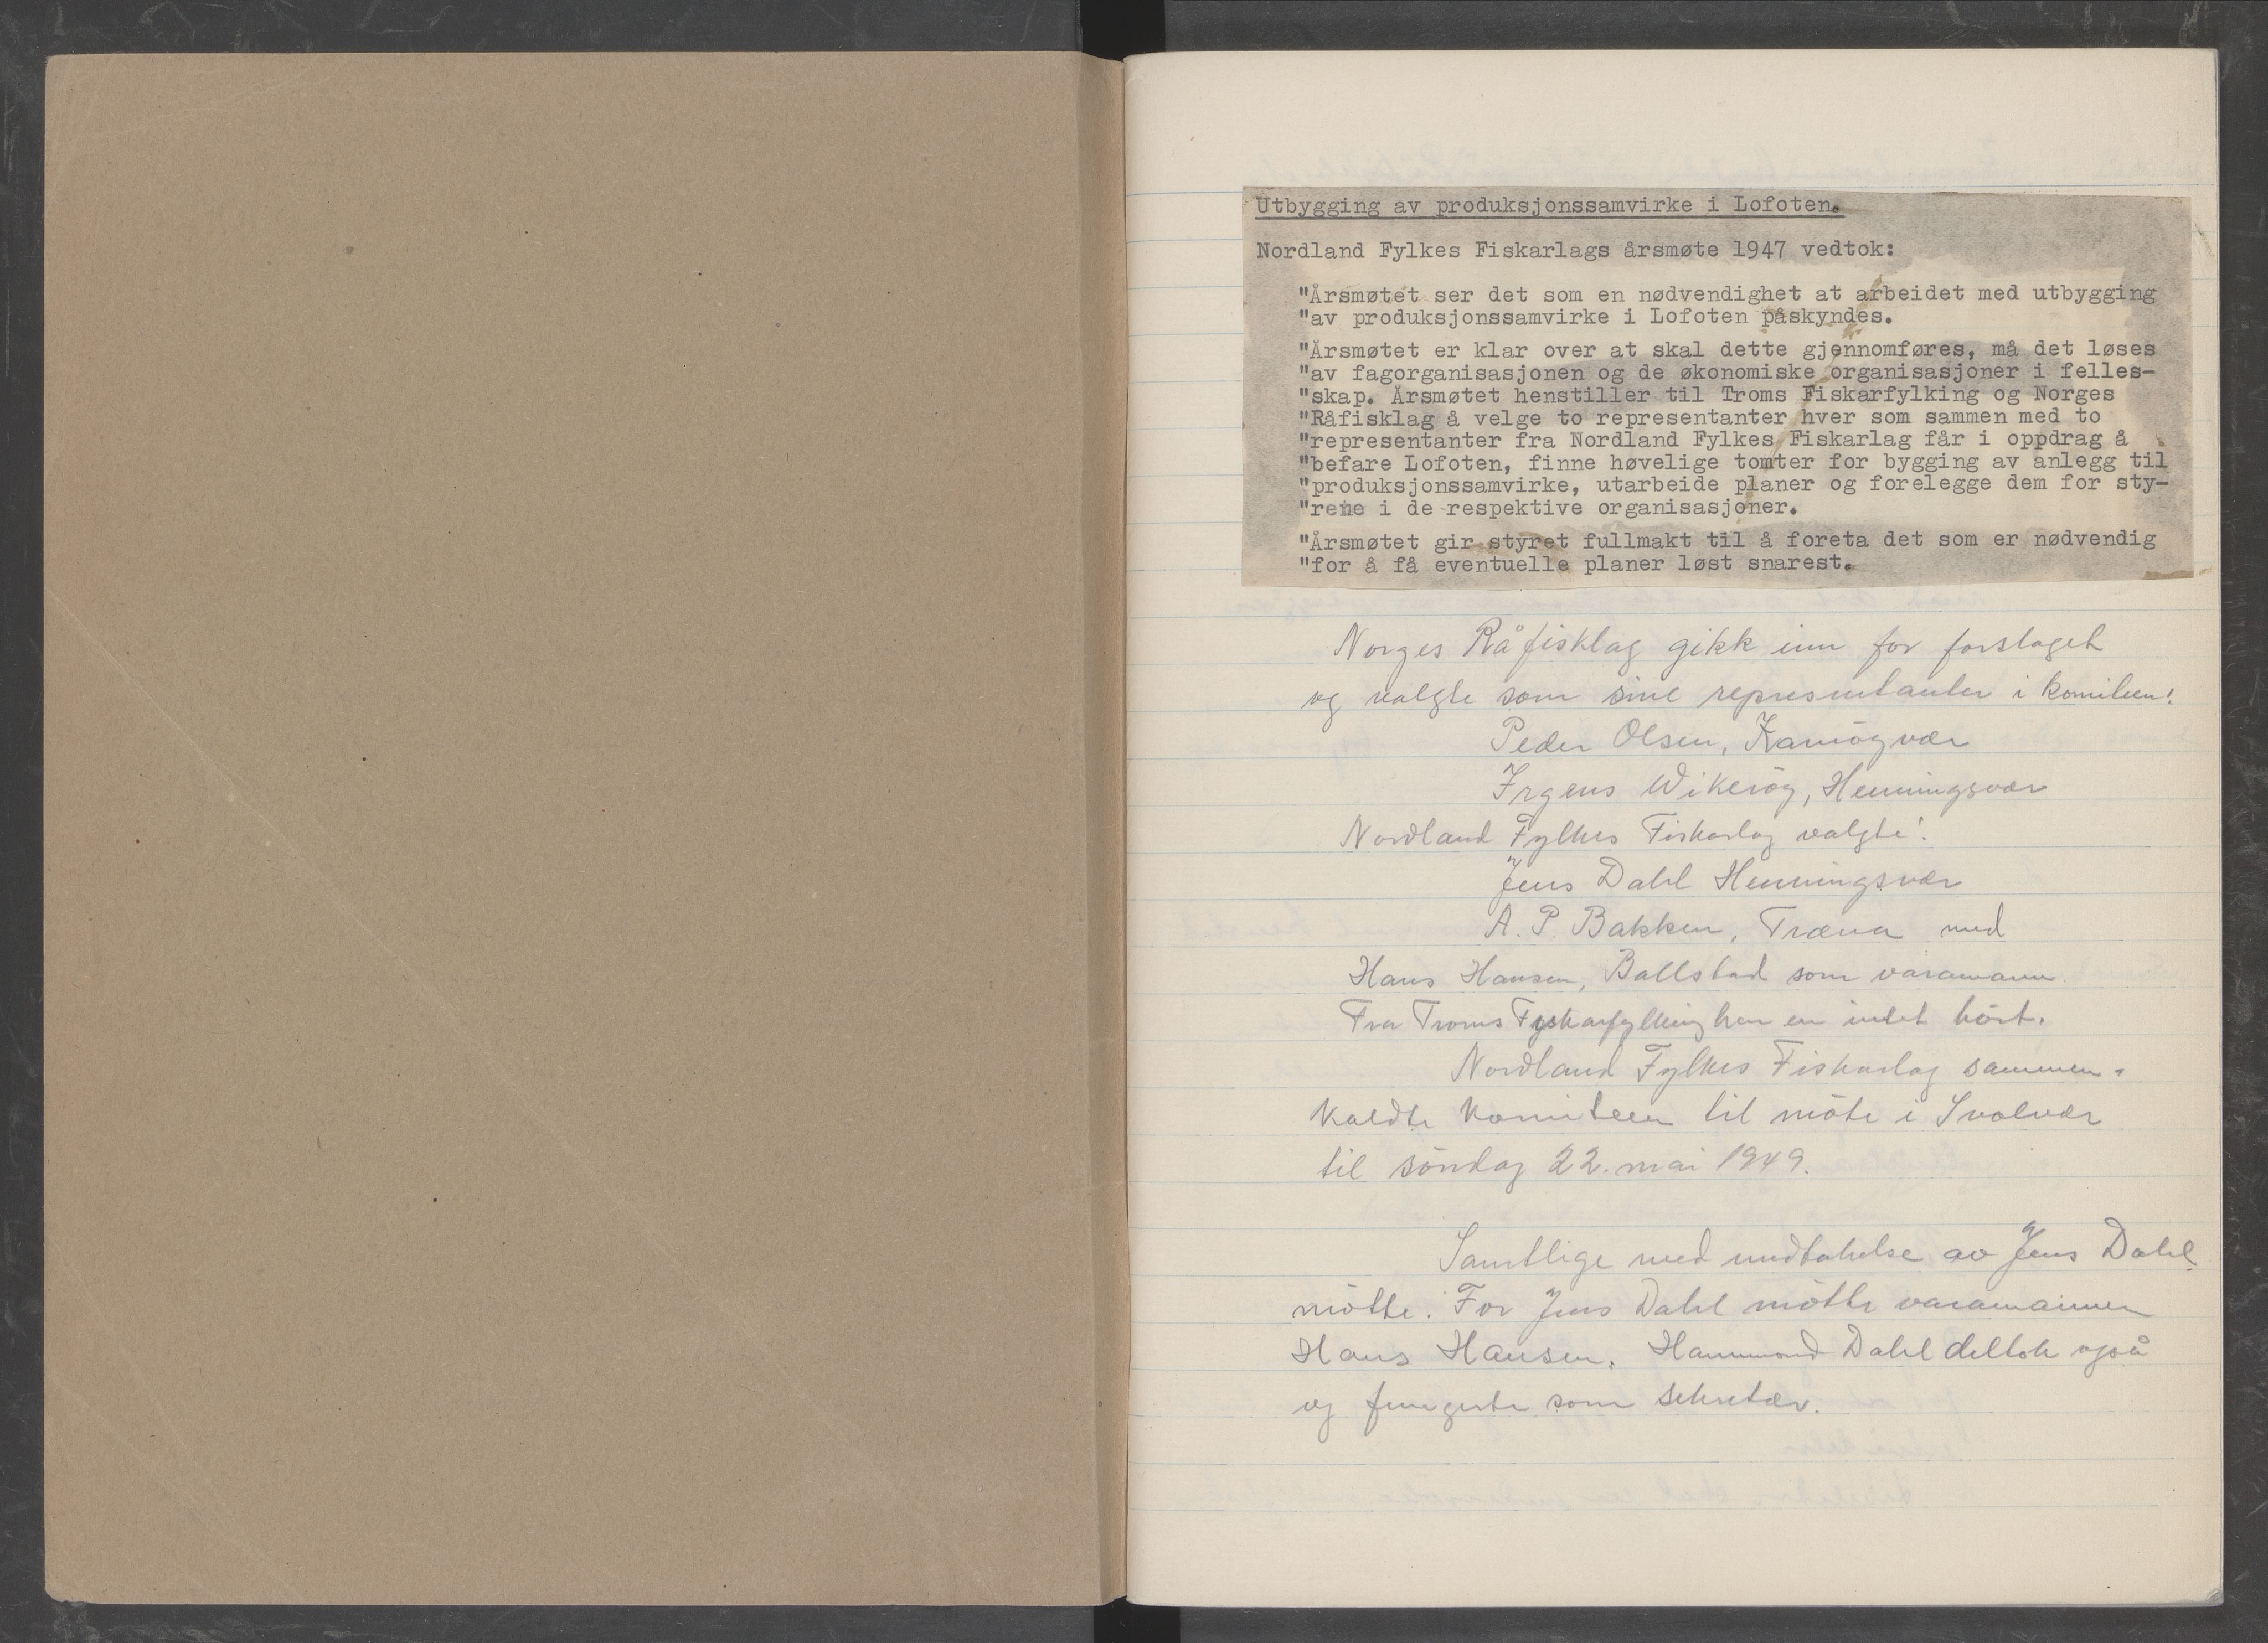 Utbygging av produksjonssamvirke i Lofoten.
Nordland Fylkes Fiskarlags årsmøte 1947 vedtok:
"Årsmøtet ser det som en nødvendighet at arbeidet med utbygging
"av produksjonssamvirke i Lofoten påskyndes.
"Årsmøtet er klar over at skal dette gjennomføres, må det løses
"av fagorganisasjonen og de økonomiske organisasjoner i felles-
"skap. Årsmøtet henstiller til Troms Fiskarfylking og Norges
"Råfisklag å velge to representanter hver som sammen med to
"representanter fra Nordland Fylkes Fiskarlag får i oppdrag å
"befare Lofoten, finne høvelige tomter for bygging av anlegg til
"produksjonssamvirke, utarbeide planer og forelegge dem for sty-
"rene i de respektive organisasjoner.
"Årsmøtet gir styret fullmakt til å foreta det som er nødvendig
"for å få eventuelle planer løst snarest.
Norges Råfisklag gikk inn for forslaget
og valgte som sine representanter i komiteen:
Peder Olsen, Kamöyvær
Irgens Wikeröy, Henningsvær
Nordland Fylkes Fiskarlag valgte:
Jens Dahl Henningsvær
A. P. Bakken, Træna med
Hans Hansen, Ballstad som varamann
Fra Troms Fiskarfylking har en intet hört.
Nordland Fylkes Fiskarlag sammen-
kaldte komiteen til möte i Svolvær
til söndag 22. mai 1949.
Samtlige med undtakelse av Jens Dahl
mötte. For Jens Dahl mötte varamannen
Hans Hansen. Hammond Dahl deltok også
og fungerte som sekretær.